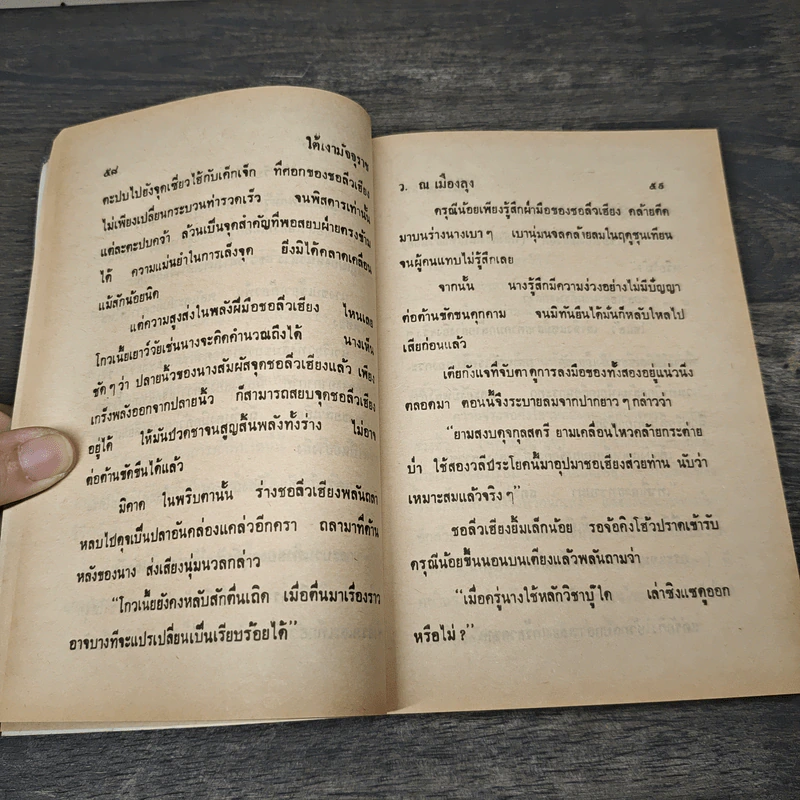 ๕๘
ใต้เงามัจจุราช
ตะปบไปยังจุดเซี่ยวไฮ้กับเค็กเจ็ก ที่ศอกของซอลิ่วเฮียง
ไม่เพียงเปลี่ยนกระบวนท่ารวดเร็ว จนพิสดารเท่านั้น
แต่ละตะปบคว้า ล้วนเป็นจุดสำคัญที่พอสยบฝ่ายตรงข้าม
ได้ ความแม่นยำในการเล็งจุด ยังมิได้คลาดเคลื่อน
แม้สักน้อยนิด
แต่ความสูงส่งในพลังฝีมือซอลิ่วเฮียง ไหนเลย
โกวเนี้ยเยาว์วัยเช่นนางจะคิดคำนวณถึงได้ นางเห็น
ชัดๆว่า ปลายนิ้วของนางสัมผัสจุดซอลิ่วเฮียงแล้ว เพียง
เกร็งพลังออกจากปลายนิ้ว ก็สามารถสยบจุดซอลิ่วเฮียง
อยู่ได้ ให้มันปวดชาจนสูญสิ้นพลังทั้งร่าง ไม่อาจ
ต่อต้านขัดขืนได้แล้ว
มิคาด ในพริบตานั้น ร่างซอลิ่วเฮียงพลันถลา
หลบไปดุจเป็นปลาอันคล่องแคล่วอีกครา ถลามาที่ด้าน
หลังของนาง ส่งเสียงนุ่มนวลกล่าว
“โกวเนี้ยยังคงหลับสักตื่นเถิด เมื่อตื่นมาเรื่องราว
อาจบางทีจะแปรเปลี่ยนเป็นเรียบร้อยได้”
ว. ณ เมืองลุง
๕๙
ดรุณีน้อยเพียงรู้สึกฝ่ามือของซอลิ่วเฮียง คล้ายดีด
มาบนร่างนางเบาๆ เบานุ่มนวลคล้ายลมในฤดูชุนเทียน
จนผู้คนแทบไม่รู้สึกเลย
จากนั้น นางรู้สึกมีความง่วงอย่างไม่มีปัญญา
ต่อต้านขัดขนคุกคาม จนมิทันยืนได้มั่นก็หลับใหลไป
เสียก่อนแล้ว
เตียกังแจที่จับตาดูการลงมือของทั้งสองอยู่แน่วนิ่ง
ตลอดมา ตอนนี้จึงระบายลมจากปากยาวๆกล่าวว่า
“ยามสงบดุจกุลสตรี ยามเคลื่อนไหวคล้ายกระต่าย
ป่า ใช้สองวลีประโยคนี้มาอุปมาซอเฮียงส่วยท่าน นับว่า
เหมาะสมแล้วจริงๆ”
ซอลิ่วเฮียงยิ้มเล็กน้อย รอจ้อคิงโฮ้วปราดเข้ารับ
ดรุณีน้อยขึ้นนอนบนเตียงแล้วพลันถามว่า
“เมื่อครู่นางใช้หลักวิชาบู๊ใด เล่าซิงแซดูออก
หรือไม่ ?”